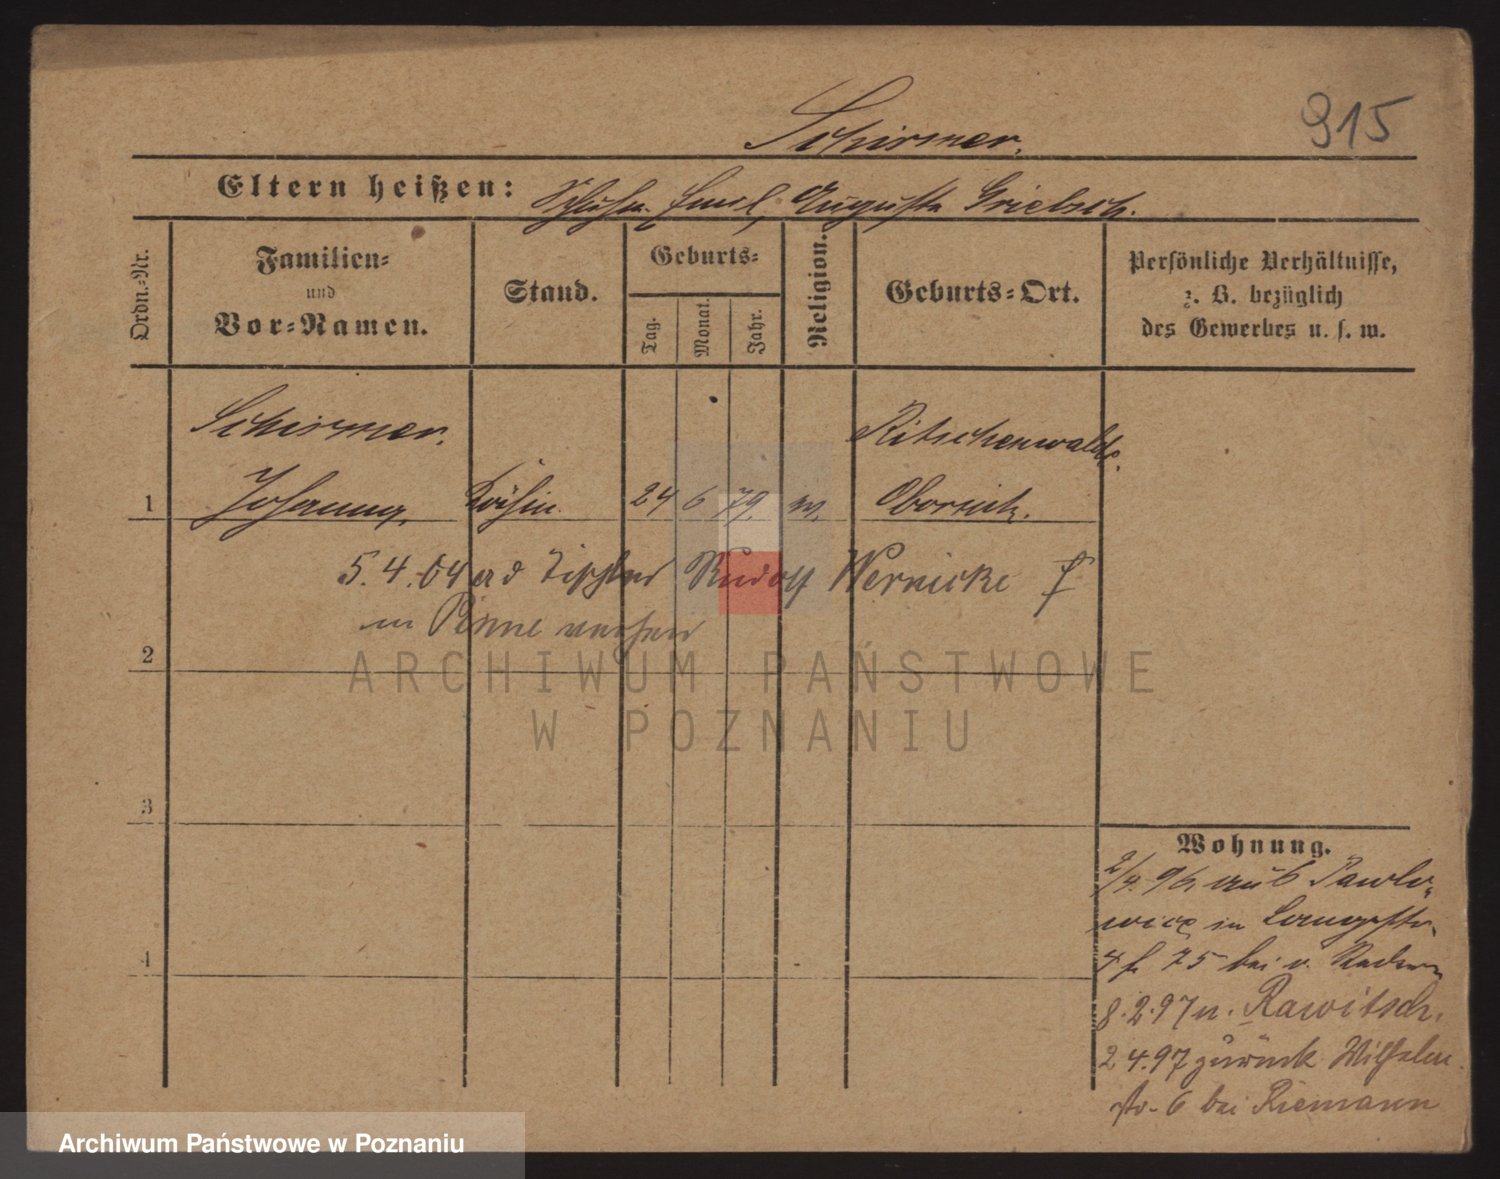 915
Schirmer.
Eltern heißen: Emil, Auguste Grietsch.
Ordn.-Nr.
Familien-
und
Vor-Namen.
Stand.
Geburts-
Tag.
Monat.
Jahr.
Religion.
Geburts-Ort.
Persönliche Verhältnisse,
z. B. bezüglich
des Gewerbes u. s. w.
Schirmer.
Ritschenwalde.
1 Johanna. Köchin 24 6 79. Obornik.
5.4.04 Rudolf Wernicke
in Pinne
2
ARCHIWUM PAŃSTWOWE
W POZNANIU
3
Wohnung.
2/4. 96 aus Pawlo-
wice in Langestr.
4 75 bei v.
4
8.2.97 n. Rawitsch.
2 4.97 zurück Wilhelm
str. 6 bei Riemann
Archiwum Państwowe w Poznaniu